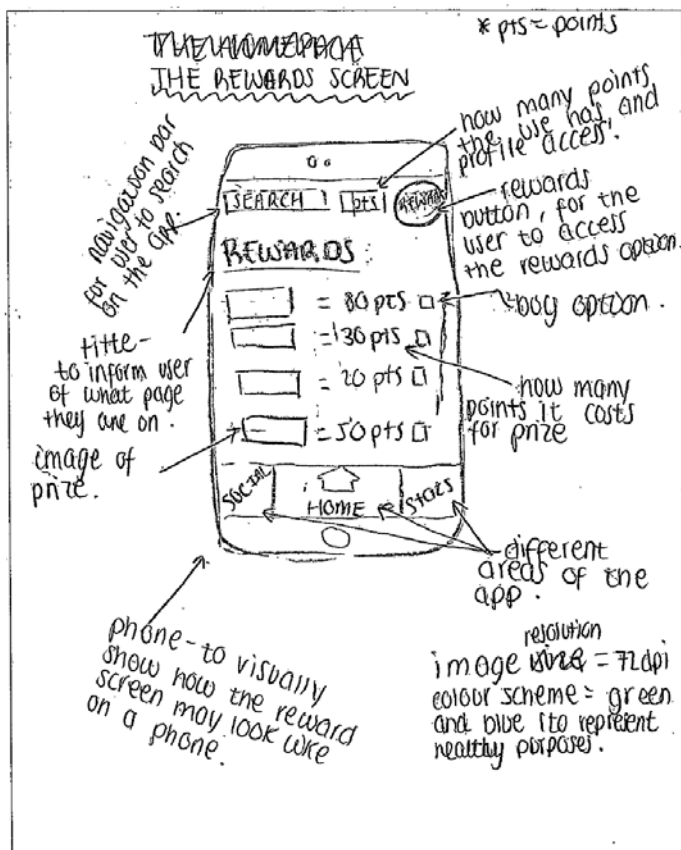 * pts = points
THE HOMEPAGE
THE REWARDS SCREEN
how many points
the use has, and
profile access.
navigation bar
for user to search
on the app.
SEARCH
pts
REWARDS
rewards
button, for the
user to access
the rewards option.
REWARDS:
= 80 pts
buy option.
= 130 pts
= 20 pts
= 50 pts
title -
to inform user
of what page
they are on.
how many
points it costs
for prize
image of
prize.
SOCIAL
HOME
Stats
different
areas of the
app.
phone - to visually
show how the reward
screen may look like
on a phone.
resolution
image size = 72dpi
colour scheme = green
and blue (to represent
healthy purposes.